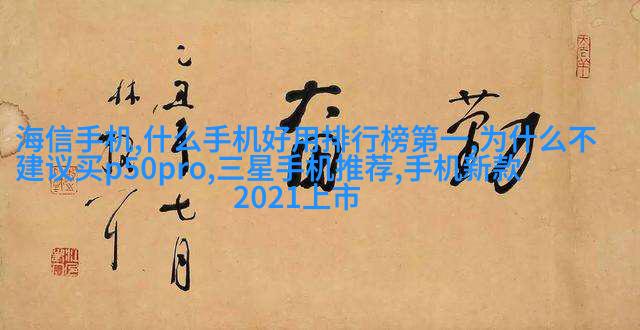 海信手机,什么手机好用排行榜第一,为什么不
建议买p50pro,三星手机推荐,手机新款
2021上市
勤奋
乙丑年七月
林